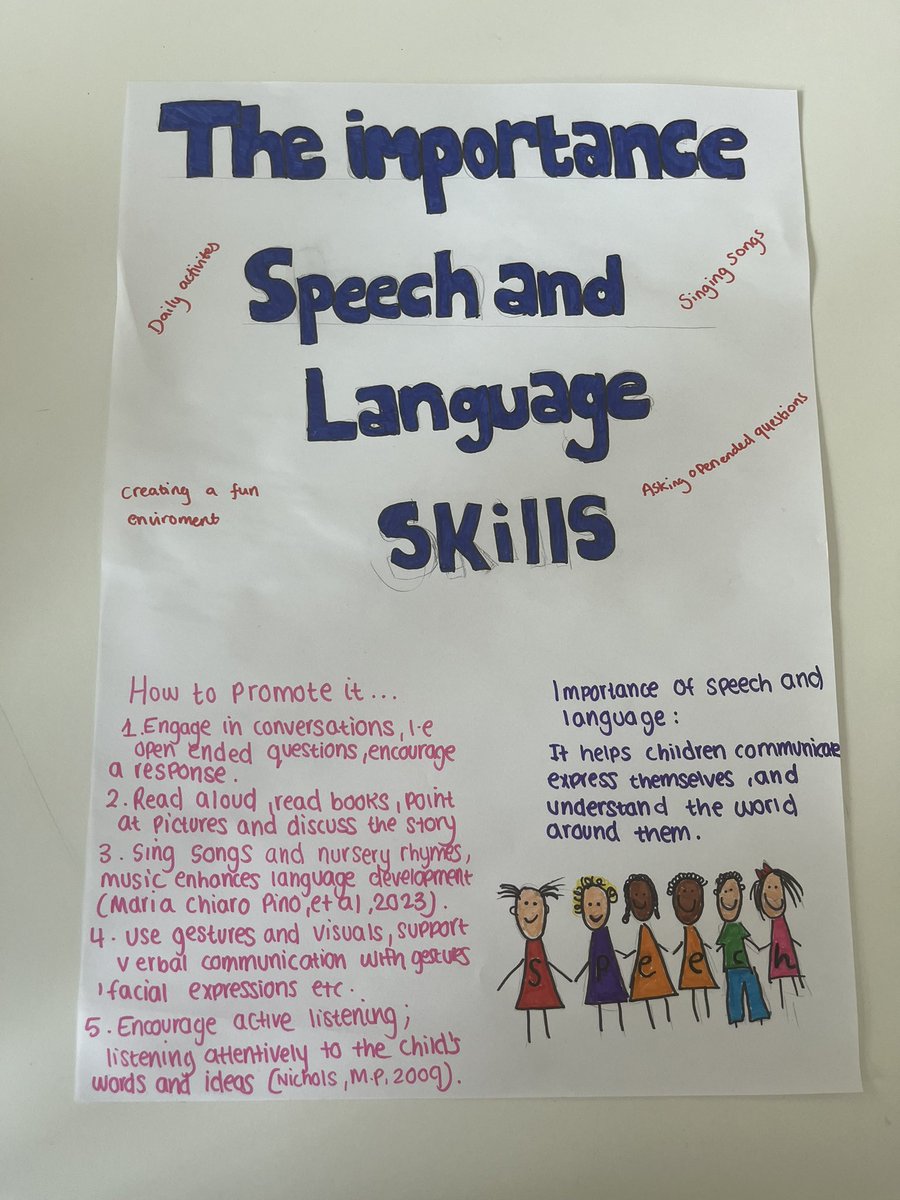 The importance
Daily activites
Speech and
Singing songs
Language
Asking open ended questions
Creating a fun
enviroment
SKillS
How to promote it...
1. Engage in conversations, i.e
open ended questions, encourage
a response.
2. Read aloud, read books, point
at pictures and discuss the story
3. Sing songs and nursery rhymes,
music enhances language development
(Maria Chiaro Pino, et al, 2023).
4. use gestures and visuals, support
verbal communication with gestures
, facial expressions etc.
5. Encourage active listening;
listening attentively to the child's
words and ideas (Nichols, M.P, 2009).
Importance of speech and
language:
It helps children communicate
express themselves, and
understand the world
around them.
Speech